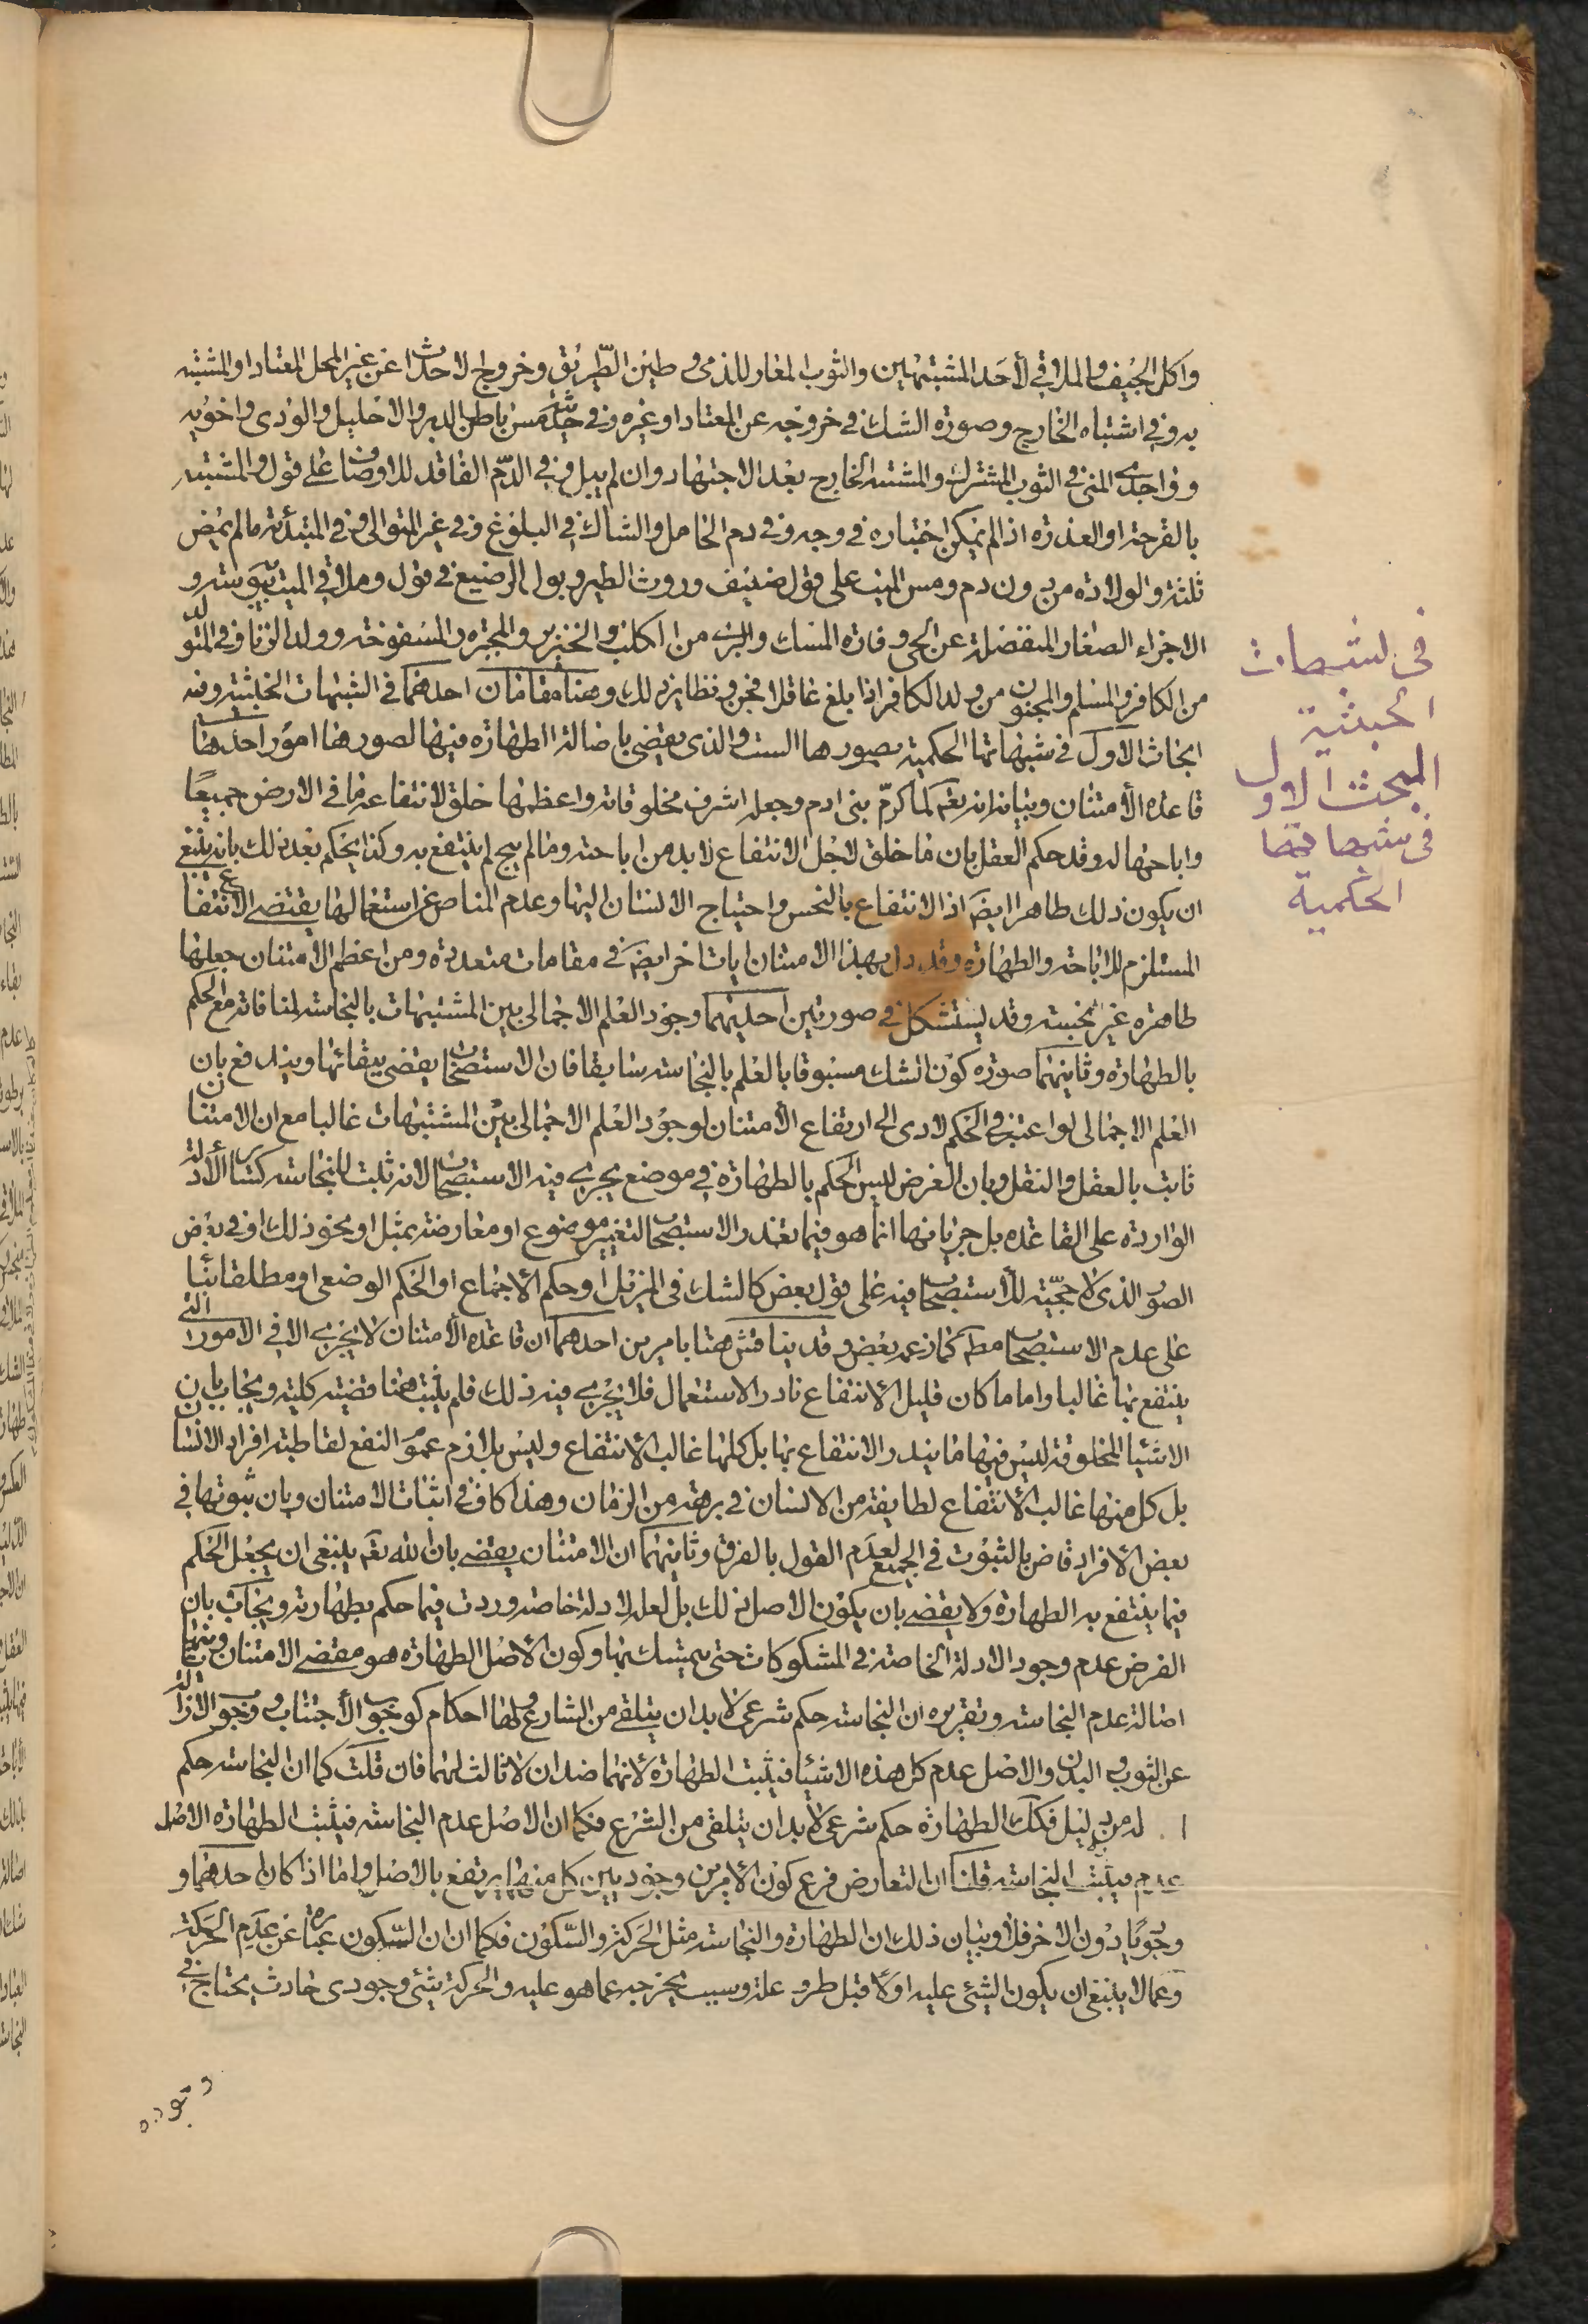 واكل الجيف والملاقي لأحد المشتبهين والثوب المعار للذمى وطين الطريق وخروج الاحداث عن غير المحل المعتاد او المشتبه
به وفي اشتباه الخارج وصورة الشك في خروجه عن المعتاد او غيره وفي حدثية مس باطن الدبر والاحليل والوذى واخويه
وفي واجدى المنى في الثوب المشترك والمشتبه الخارج بعد الاجتهاد وان لم يبل وفي الدم الفاقد للاوصاف على قول والمشتبه
بالقرحة او العذرة اذا لم يمكن اختباره في وجه وفي دم الحامل والشاك في البلوغ وفي غير المتوالى وفي المبتدئة مالم يمض
ثلثة والولادة من دون دم ومس الميت على قول ضعيف وروث الطير وبول الرضيع في قول وملاقي الميت بيبوسة و
الاجزاء الصغار المنفصلة عن الحى وفارة المسك والبرى من الكلب والخنزير والمجترة والمنفوخة وولد الزنا وفي المتولد
من الكافر والمسلم والمجنون من ولد الكافر اذا بلغ عاقلا فجن ونظاير ذلك وهنا مقامان احدهما في الشبهات الخبثية وفيه
ابحاث الاول في شبهاتها الحكمية بصورها الست والذى يقضى باصالة الطهارة فيها لصورها امور احدها
قاعدة الأمتنان وبيانه انه تعم لما كرم بنى ادم وجعله اشرف مخلوقاته واعظمها خلق لانتفاعه ما في الارض جميعا
واباحها له وقد حكم العقل بان ما خلق لاجل الانتفاع لابد من اباحته ومالم يبح لم ينتفع به وكذا يحكم بعد ذلك بانه ينبغى
ان يكون ذلك طاهرا ايضا اذ الانتفاع بالنجس واحتياج الانسان اليها وعدم المناص عن استعمالها يقتضى الانتفاع
المستلزم للاباحة والطهارة وقد دل بهذا الامتنان ايات اخر ايضا في مقامات متعددة ومن اعظم الامتنان جعلها
طاهرة غير نجسة وقد يستشكل في صورتين احديهما وجود العلم الاجمالى بين المشتبهات بالنجاسة لمنافاته مع الحكم
بالطهارة وثانيهما صورة كون الشك مسبوقا بالعلم بالنجاسة سابقا فان الاستصحاب يقضى ببقائها ويندفع بان
العلم الاجمالى لو اعتبر في الحكم لادى الى ارتفاع الأمتنان لوجود العلم الاجمالى بين المشتبهات غالبا مع ان الامتنان
ثابت بالعقل والنقل وبان الغرض ليس الحكم بالطهارة في موضع يجرى فيه الاستصحاب لانه مثبت للنجاسة كسائر الأدلة
الواردة على القاعدة بل جريانها انما هو فيما تعذر الاستصحاب لتغيير موضوع او معارضة بمثل او نحو ذلك او في بعض
الصور الذى لا حجية للأستصحاب فيه على قول بعض كالشك في المزيل او حكم الأجماع او الحكم الوضعى او مطلقا بناء
على عدم الاستصحاب مطم كما زعمه بعض وقد يناقش هنا بامرين احدهما ان قاعدة الأمتنان لا يجرى الا في الامور التى
ينتفع بها غالبا واما ما كان قليل الأنتفاع نادر الاستعمال فلا يجرى فيه ذلك فلم يثبت هنا قضية كلية ويجاب بان
الاشياء المخلوقة ليس فيها ما يندر الانتفاع بها بل كلها غالب الأنتفاع وليس بلازم عموم النفع لقاطبة افراد الانسان
بل كل منها غالب الأنتفاع لطايفة من الانسان في برهة من الزمان وهذا كاف في اثبات الامتنان وبان ثبوتها في
بعض الأفراد قاض بالثبوت في الجميع لعدم القول بالفرق وثانيهما ان الامتنان يقضى بان الله تعم ينبغى ان يجعل الحكم
فيما ينتفع به الطهارة ولا يقضى بان يكون الاصل ذلك بل لعله لادلة خاصة وردت فيما حكم بطهارته ويجاب بان
الفرض عدم وجود الادلة الخاصة في المشكوكات حتى يتمسك بها وكون الأصل الطهارة هو مقتضى الامتنان وثانيها
اصالة عدم النجاسة وتقريره ان النجاسة حكم شرعى لابد ان يتلقى من الشارع ولها احكام كوجوب الأجتناب ووجوب الازالة
عن الثوب والبدن والاصل عدم كل هذه الاشياء فيثبت الطهارة لانهما ضدان لا ثالث لهما فان قلت كما ان النجاسة حكم
لابد له من دليل فكك الطهارة حكم شرعى لابد ان يتلقى من الشرع فكما ان الاصل عدم النجاسة فيثبت الطهارة الاصل
عدم فيثبت النجاسة قلنا ان التعارض فرع كون الأمرين وجوديين كل منهما يرتفع بالاصل واما اذا كان احدهما و
وجوديا دون الاخر فلا وبيان ذلك ان الطهارة والنجاسة مثل الحركة والسكون فكما ان السكون عبارة عن عدم الحركة
وعما لا ينبغى ان يكون الشئ عليه اولا قبل طرو علة وسبب يخرجه عما هو عليه والحركة شئ وجودى حادث يحتاج في
في لشبهات
الخبثية
المبحث الاول
في شبهاتها
الحكمية
وجوده